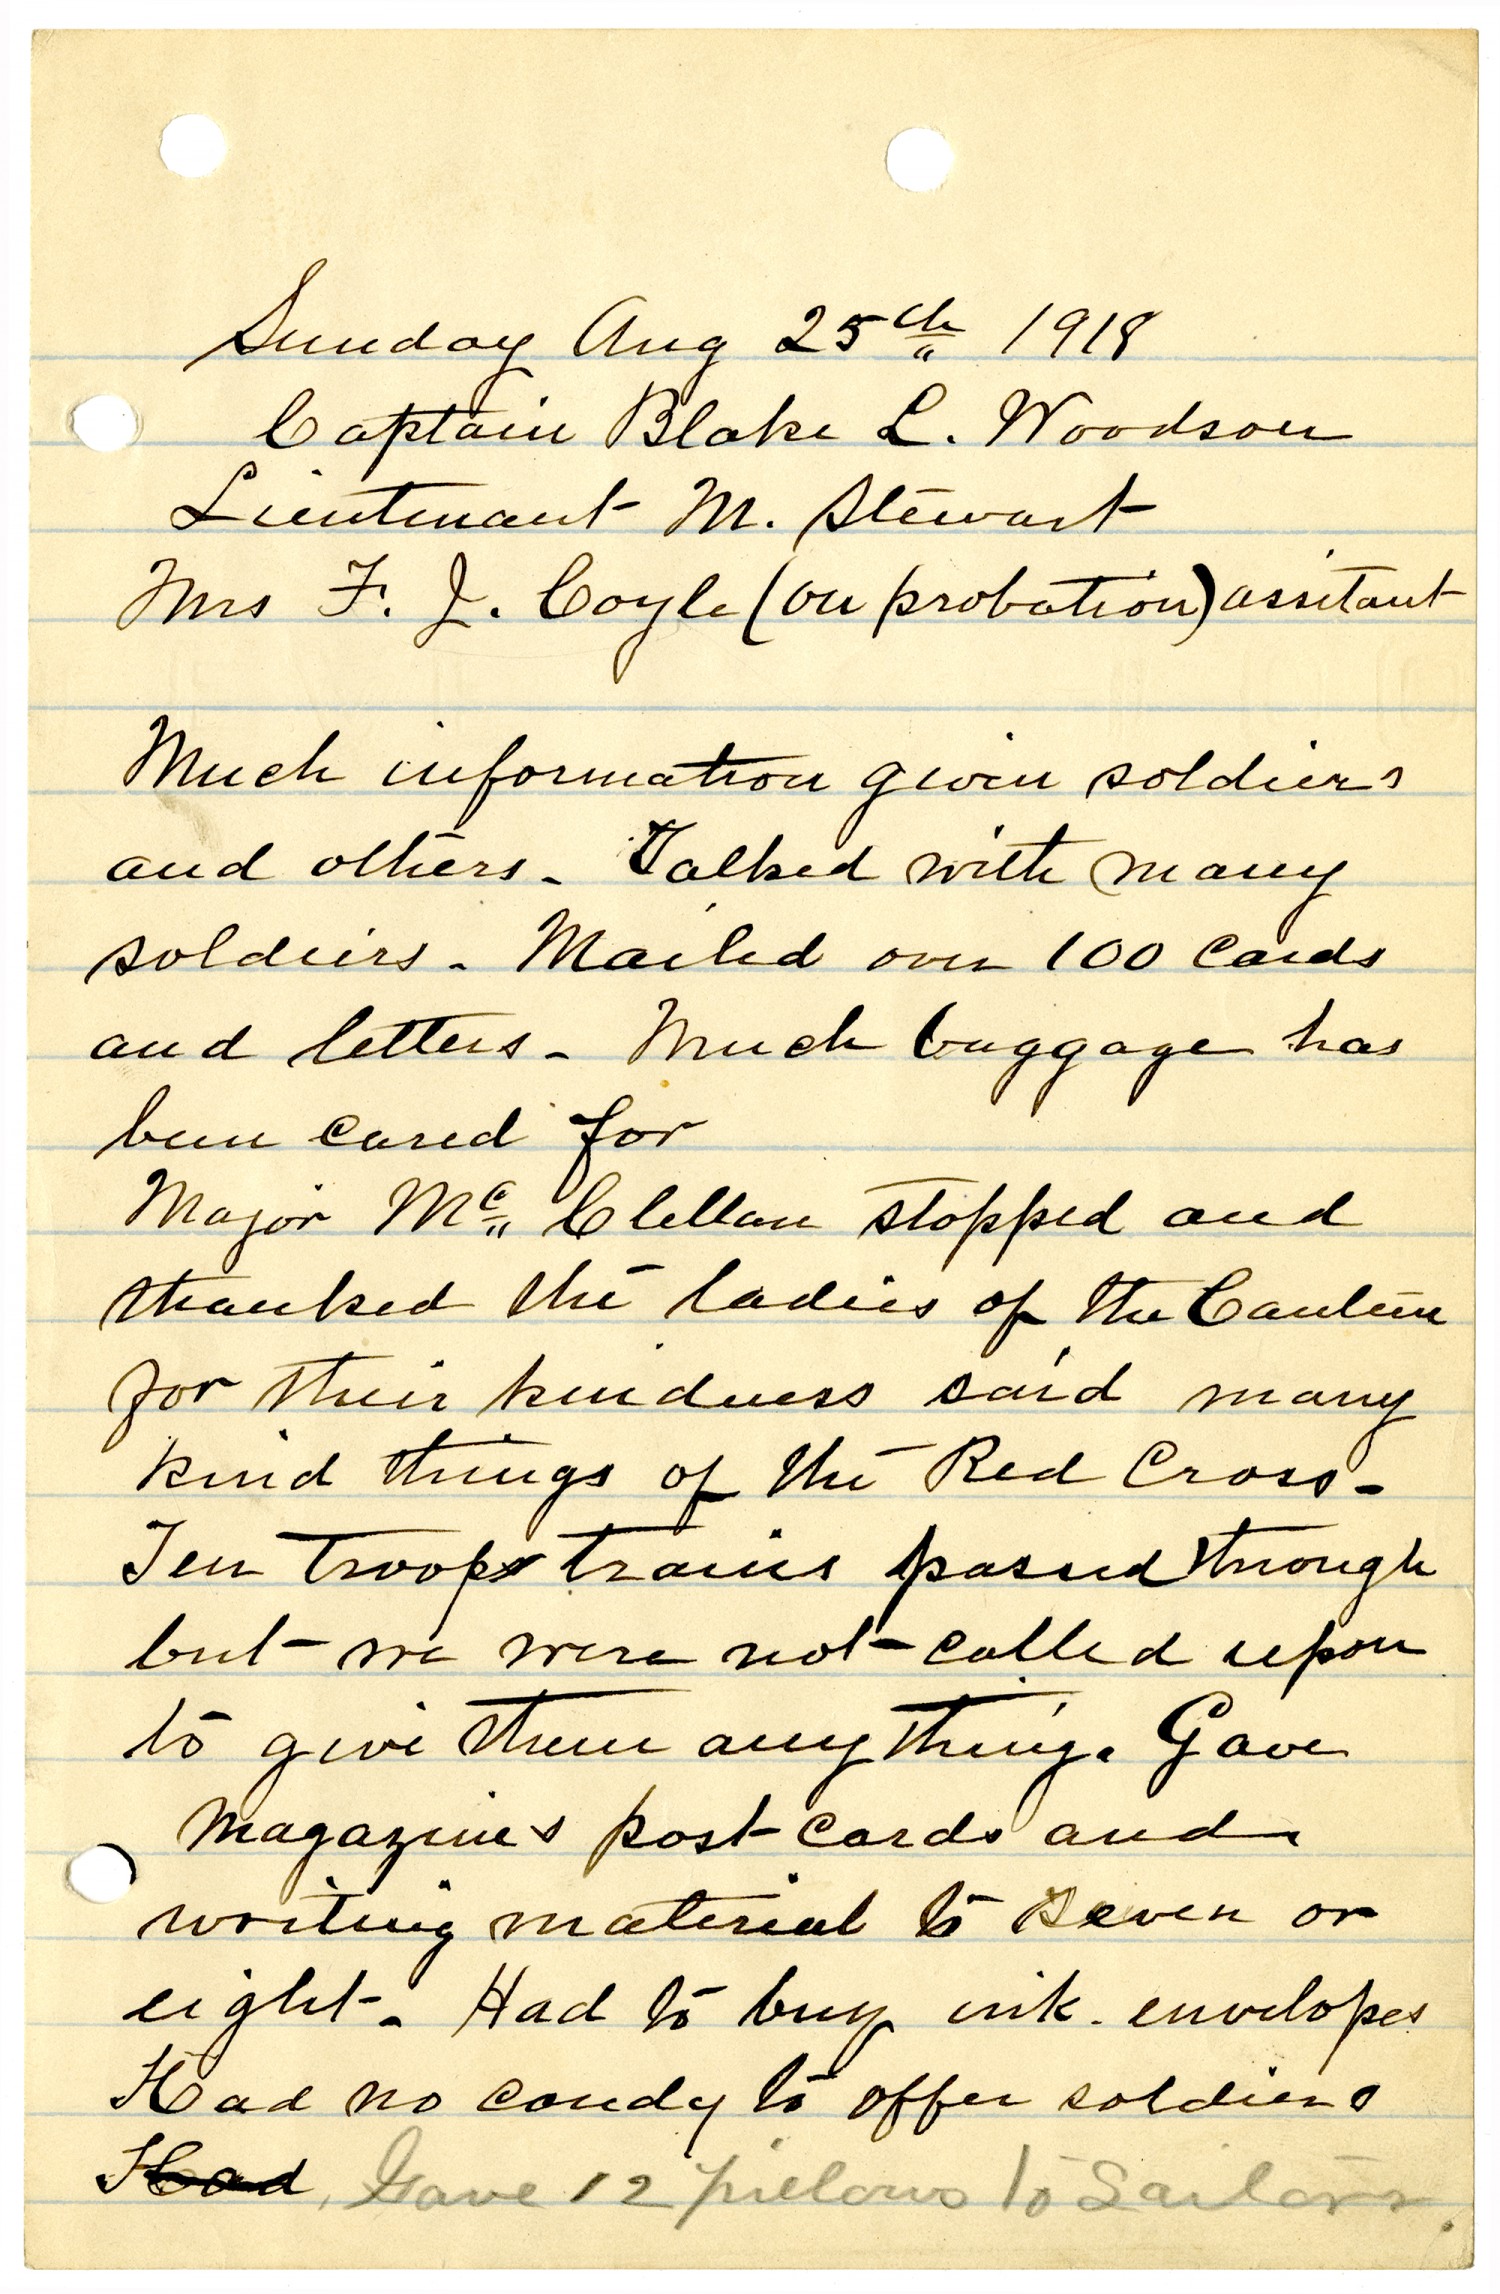 Sunday Aug 25th 1918
Captain Blake L. Woodson
Lieutenant M. Stewart
Mrs F. J. Coyle (on probation) assitant
Much information given soldiers
and others - Talked with many
soldiers - Mailed over 100 cards
and letters - Much baggage has
been cared for
Major Mc Clellan stopped and
thanked the ladies of the Canteen
for their kindness said many
kind things of the Red Cross -
Ten troop trains passed through
but we were not called upon
to give them anything. Gave
magazines post cards and
writing material to seven or
eight - Had to buy ink - envelopes
Had no candy to offer soldiers
Had, Gave 12 pillows to Sailors.